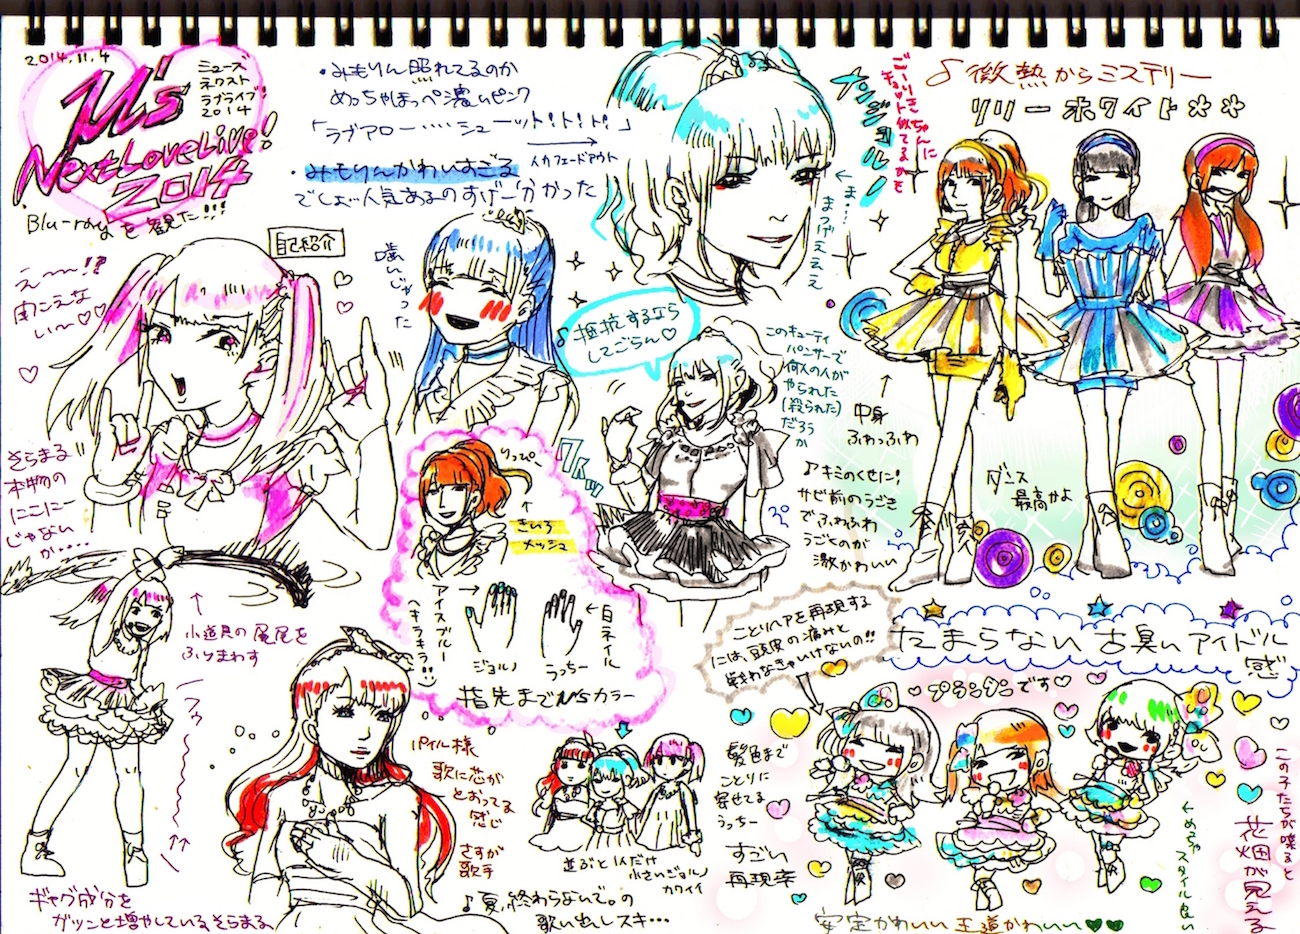 2014.11.4
μ's
NextLoveLive!
2014
ミューズ
ネクスト
ラブライブ!
2014
Blu-rayを観た!!!
・みもりん照れてるのか
めっちゃほっぺ濃いピンク
「ラブアロー‥‥シューット!ト!ト!」
人カフェードアウト
・みもりんかわいすぎる
でしょ…人気あるのすげー分かった
自己紹介
え〜!?
聞こえな
い〜♡♡
嘆いじゃった
そらまる
本物の
にこにー
じゃないか…‥
小道具の尾尾を
ふりまわす
ギャグ成分を
ガツンと増やしているそらまる
ごーりきちゃんに
チョット似てるかも
ナンジョルノ
←ま…まつげぇぇぇ
♪抵抗するなら
してごらん♡
このキューティ
パンサーで
何人の人が
やられた
(殺られた)
だろうか
♪キミのくせに!
サビ前のうごき
でふわふわ
うごくのが
激かわいい
りっぴー
きいろ
メッシュ
アイスブルー
(キラキラ)
ジョルノ
うっちー
白ネイル
指先までμ'sカラー
パイル様
歌に芯が
とおってる
感じ
さすが
歌手
並ぶと1人だけ
小さいジョルノ
カワイイ
♪夏、終わらないで。の
歌い出しスキ…
♪微熱からミステリー
リリーホワイト★★
中身
ふわっふわ
ダンス
最高かよ
たまらない古臭いアイドル
感
ことりヘアを再現する
には、頭皮の痛みと
戦わなきゃいけないの!!
髪色まで
ことりに
寄せてる
うっちー
すごい
再現率
♡プランタンです♡
←めちゃスタイル良い
この子たちが喋ると
花畑が見える
安定かわいい王道かわいい♥♥